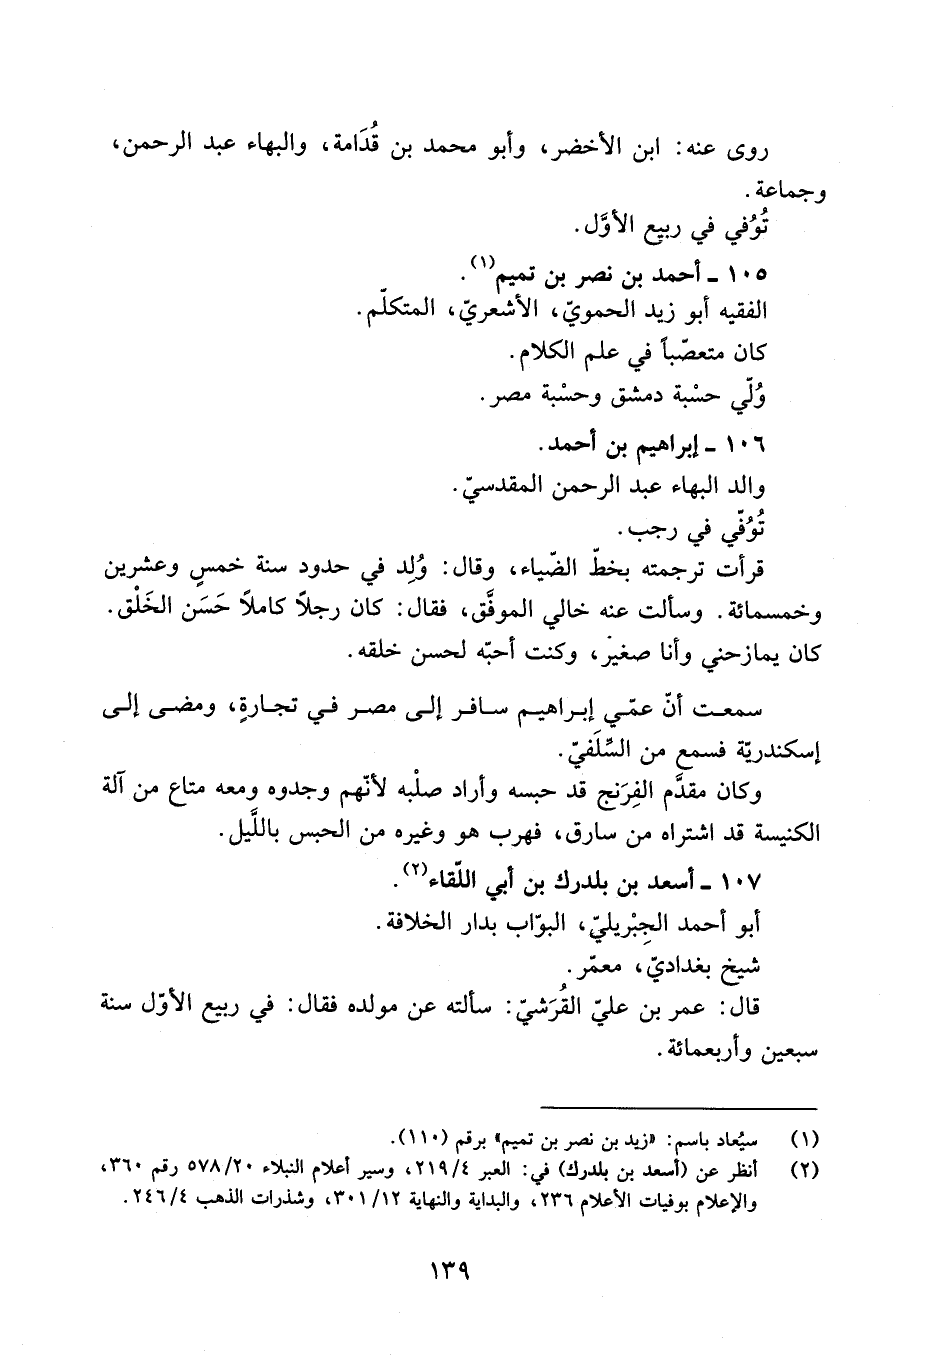 روى عنه: ابن الأخضر، وأبو محمد بن قُدَامة، والبهاء عبد الرحمن،
وجماعة.
تُوُفي في ربيع الأوَّل.
١٠٥ ـ أحمد بن نصر بن تميم(١).
الفقيه أبو زيد الحمويّ، الأشعريّ، المتكلّم.
كان متعصّباً في علم الكلام.
وُلّي حسْبة دمشق وحسْبة مصر.
١٠٦ ـ إبراهيم بن أحمد.
والد البهاء عبد الرحمن المقدسيّ.
تُوُفّي في رجب.
قرأت ترجمته بخطّ الضّياء، وقال: وُلِد في حدود سنة خمسٍ وعشرين
وخمسمائة. وسألت عنه خالي الموفَّق، فقال: كان رجلاً كاملاً حَسَن الخَلْق.
كان يمازحني وأنا صغير، وكنت أحبّه لحسن خلقه.
سمعت أنّ عمّي إبراهيم سافر إلى مصر في تجارةٍ، ومضى إلى
إسكندريّة فسمع من السِّلَفيّ.
وكان مقدَّم الفِرَنج قد حبسه وأراد صلْبه لأنّهم وجدوه ومعه متاع من آلة
الكنيسة قد اشتراه من سارق، فهرب هو وغيره من الحبس باللَّيل.
١٠٧ ـ أسعد بن بلدرك بن أبي اللّقاء(٢).
أبو أحمد الجِبْريليّ، البوّاب بدار الخلافة.
شيخ بغداديّ، معمّر.
قال: عمر بن عليّ القُرَشيّ: سألته عن مولده فقال: في ربيع الأوّل سنة
سبعين وأربعمائة.
(١) سيُعاد باسم: «زيد بن نصر بن تميم» برقم (١١٠).
(٢) أنظر عن (أسعد بن بلدرك) في: العبر ٢١٩/٤، وسير أعلام النبلاء ٥٧٨/٢٠ رقم ٣٦٠،
والإعلام بوفيات الأعلام ٢٣٦، والبداية والنهاية ٣٠١/١٢، وشذرات الذهب ٢٤٦/٤.
١٣٩